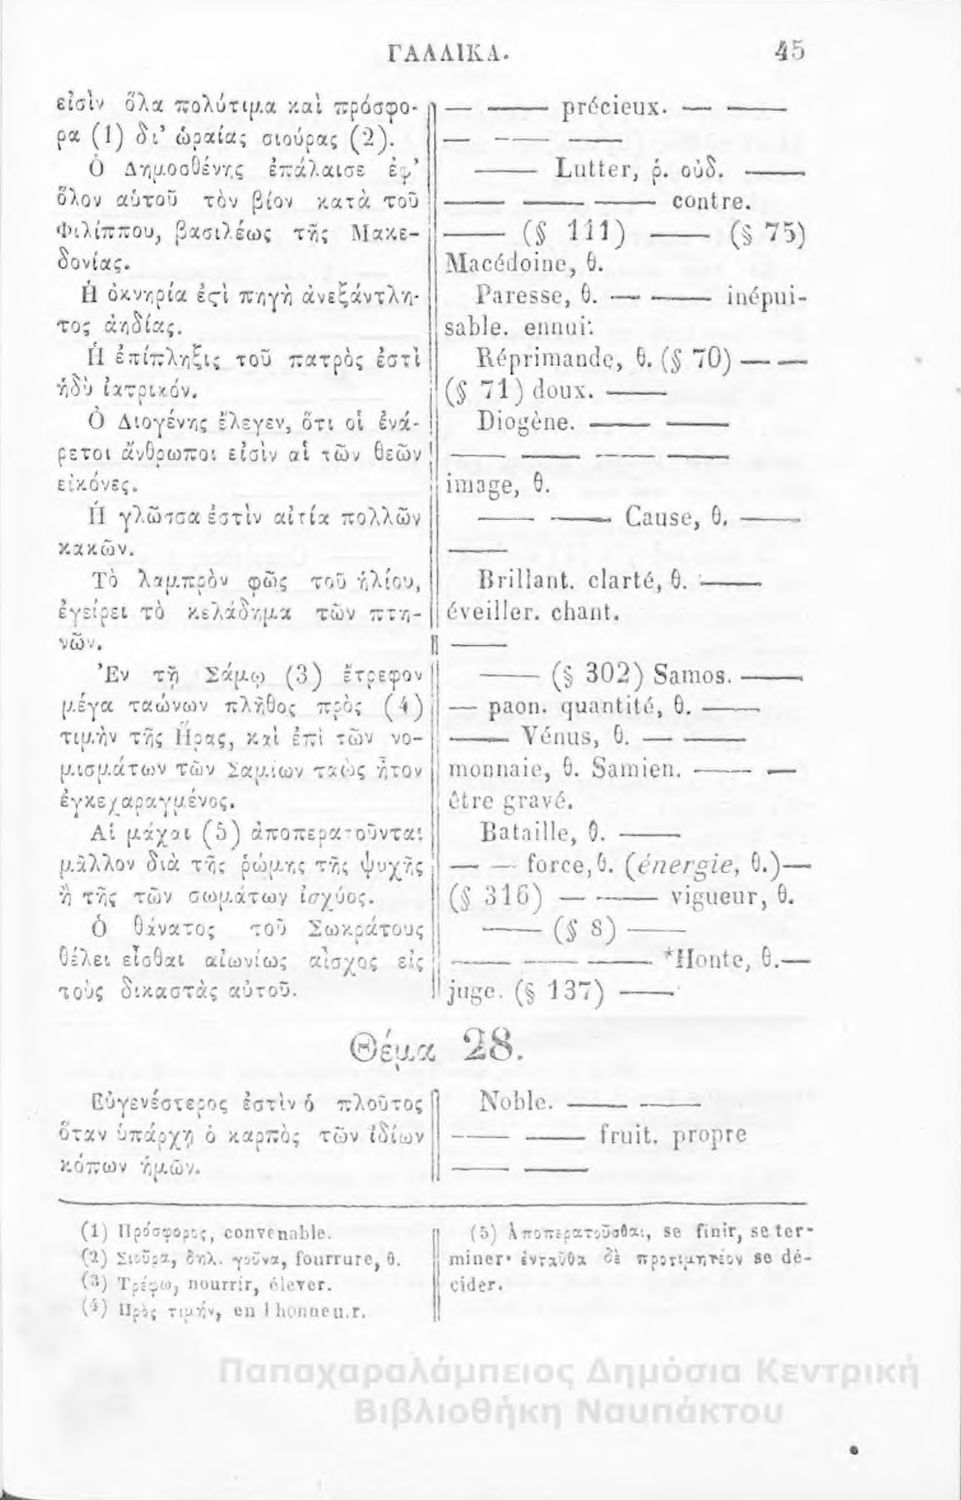 ΓΑΛΛΙΚΑ. 45
εἰσὶν ὅλα πολύτιμα καὶ πρόσφο-
ρα (1) δι' ὡραίας σιούρας (2).
Ὁ Δημοσθένης ἐπάλαισε ἐφ'
ὅλον αὑτοῦ τὸν βίον κατὰ τοῦ
Φιλίππου, βασιλέως τῆς Μακε-
δονίας.
Ἡ ὀκνηρία ἐςὶ πηγὴ ἀνεξάντλη-
τος ἀηδίας.
Ἡ ἐπίπληξις τοῦ πατρὸς ἐστὶ
ἡδὺ ἰατρικόν.
Ὁ Διογένης ἔλεγεν, ὅτι οἱ ἐνά-
ρετοι ἄνθρωποι εἰσὶν αἱ τῶν θεῶν
εἰκόνες.
Ἡ γλῶσσα ἐστὶν αἰτία πολλῶν
κακῶν.
Τὸ λαμπρὸν φῶς τοῦ ἡλίου,
ἐγείρει τὸ κελάδημα τῶν πτη-
νῶν.
Ἐν τῇ Σάμῳ (3) ἔτρεφον
μέγα ταώνων πλῆθος πρὸς (4)
τιμὴν τῆς Ἥρας, καὶ ἐπὶ τῶν νο-
μισμάτων τῶν Σαμίων ταὼς ἦτον
ἐγκεχαραγμένος.
Αἱ μάχαι (5) ἀποπερατοῦνται
μᾶλλον διὰ τῆς ῥώμης τῆς ψυχῆς
ἢ τῆς τῶν σωμάτων ἰσχύος.
Ὁ θάνατος τοῦ Σωκράτους
θέλει εἶσθαι αἰωνίως αἶσχος εἰς
τοὺς δικαστὰς αὑτοῦ.
— —— précieux. — ——
— —— ——
—— Lutter, ῥ. οὐδ. ——
—— —— —— contre.
—— (§ 111) —— (§ 75)
Macédoine, θ.
Paresse, θ. — —— inépui-
sable. ennui.
Réprimande, θ. (§ 70) — —
(§ 71) doux. ——
Diogène. —— ——
—— —— —— ——
image, θ.
—— —— Cause, θ. ——
——
Brillant. clarté, θ. ——
éveiller. chant.
——
—— (§ 302) Samos. ——
— paon. quantité, θ. ——
—— Vénus, θ. — ——
monnaie, θ. Samien. —— —
être gravé.
Bataille, θ. ——
— — force, θ. (énergie, θ.) —
(§ 316) — —— vigueur, θ.
—— (§ 8) ——
—— —— —— *Honte, θ. —
juge. (§ 137) ——
Θέμα 28.
Εὐγενέστερος ἐστὶν ὁ πλοῦτος
ὅταν ὑπάρχῃ ὁ καρπὸς τῶν ἰδίων
κόπων ἡμῶν.
Noble. —— ——
—— —— fruit. propre
—— ——
(1) Πρόσφορος, convenable.
(2) Σιοῦρα, δηλ. γοῦνα, fourrure, θ.
(3) Τρέφω, nourrir, élever.
(4) Πρὸς τιμήν, en l honneur.
(5) Ἀποπερατοῦσθαι, se finir, se ter-
miner· ἐνταῦθα δὲ προτιμητέον se dé-
cider.
Παπαχαραλάμπειος Δημόσια Κεντρική
Βιβλιοθήκη Ναυπάκτου